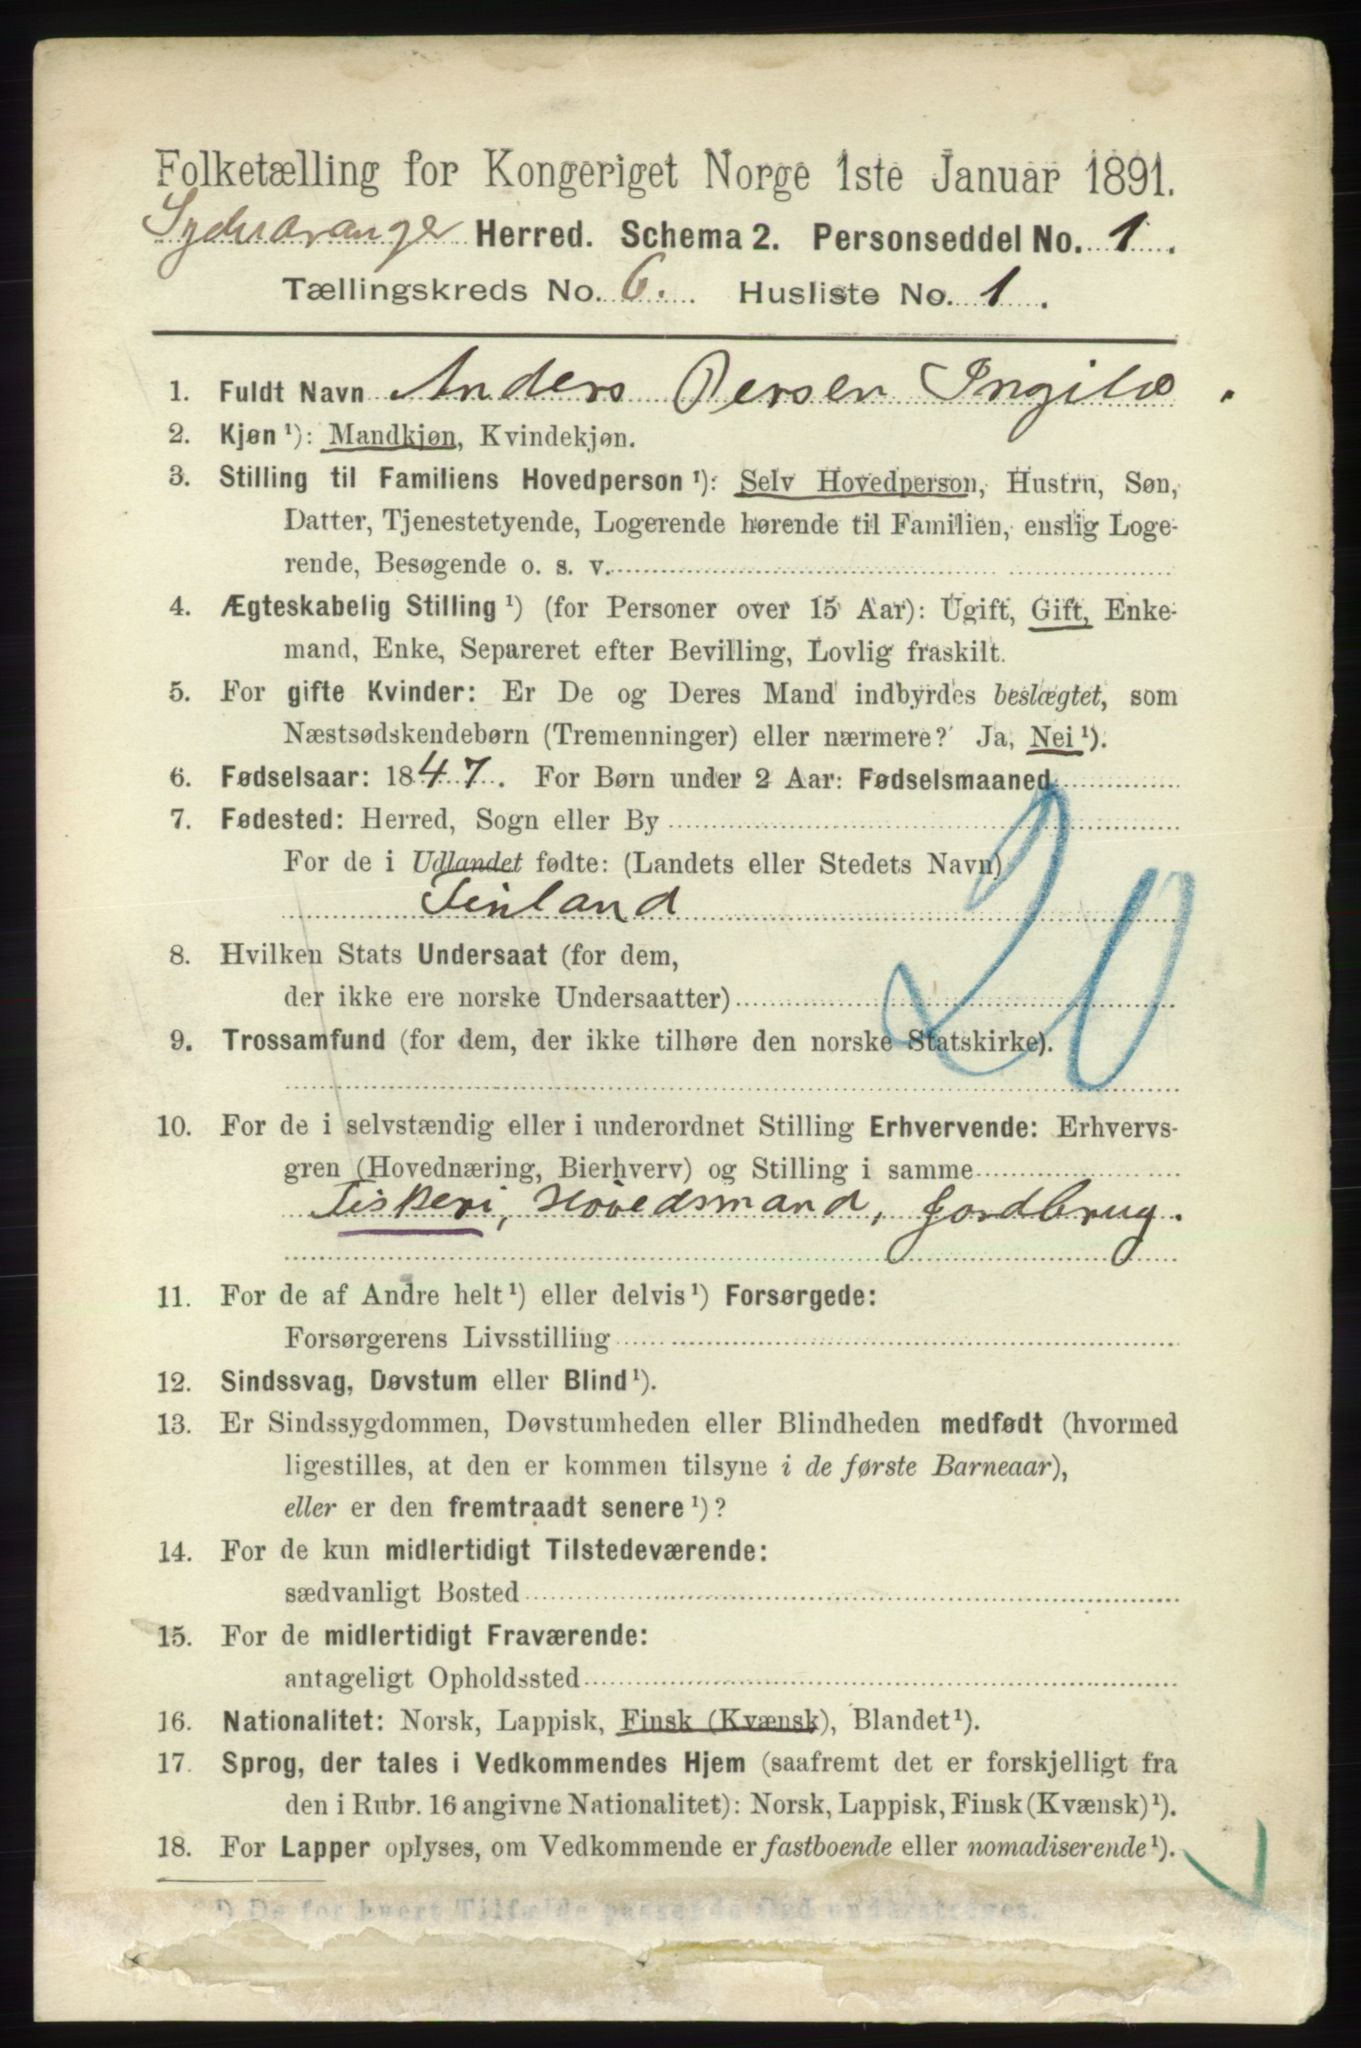 Folketælling for Kongeriget Norge 1ste Januar 1891.
Sydvaranger Herred. Schema 2. Personseddel No. 1.
Tællingskreds No. 6. Husliste No. 1.
1. Fuldt Navn Anders Persen Ingilæ.
2. Kjøn ¹): Mandkjøn, Kvindekjøn.
3. Stilling til Familiens Hovedperson ¹): Selv Hovedperson, Hustru, Søn,
Datter, Tjenestetyende, Logerende hørende til Familien, enslig Loge-
rende, Besøgende o. s. v.
4. Ægteskabelig Stilling ¹) (for Personer over 15 Aar): Ugift, Gift, Enke-
mand, Enke, Separeret efter Bevilling, Lovlig fraskilt.
5. For gifte Kvinder: Er De og Deres Mand indbyrdes beslægtet, som
Næstsødskendebørn (Tremenninger) eller nærmere? Ja, Nei ¹).
6. Fødselsaar: 1847. For Børn under 2 Aar: Fødselsmaaned
7. Fødested: Herred, Sogn eller By
For de i Udlandet fødte: (Landets eller Stedets Navn)
Finland
20
8. Hvilken Stats Undersaat (for dem,
der ikke ere norske Undersaatter)
9. Trossamfund (for dem, der ikke tilhøre den norske Statskirke).
10. For de i selvstændig eller i underordnet Stilling Erhvervende: Erhvervs-
gren (Hovednæring, Bierhverv) og Stilling i samme
Fiskeri, Hovedsmand, Jordbrug.
11. For de af Andre helt ¹) eller delvis ¹) Forsørgede:
Forsørgerens Livsstilling
12. Sindssvag, Døvstum eller Blind ¹).
13. Er Sindssygdommen, Døvstumheden eller Blindheden medfødt (hvormed
ligestilles, at den er kommen tilsyne i de første Barneaar),
eller er den fremtraadt senere ¹)?
14. For de kun midlertidigt Tilstedeværende:
sædvanligt Bosted
15. For de midlertidigt Fraværende:
antageligt Opholdssted
16. Nationalitet: Norsk, Lappisk, Finsk (Kvænsk), Blandet ¹).
17. Sprog, der tales i Vedkommendes Hjem (saafremt det er forskjelligt fra
den i Rubr. 16 angivne Nationalitet): Norsk, Lappisk, Finsk (Kvænsk) ¹).
18. For Lapper oplyses, om Vedkommende er fastboende eller nomadiserende ¹).
¹) De for hvert Tilfælde passende Ord understreges.